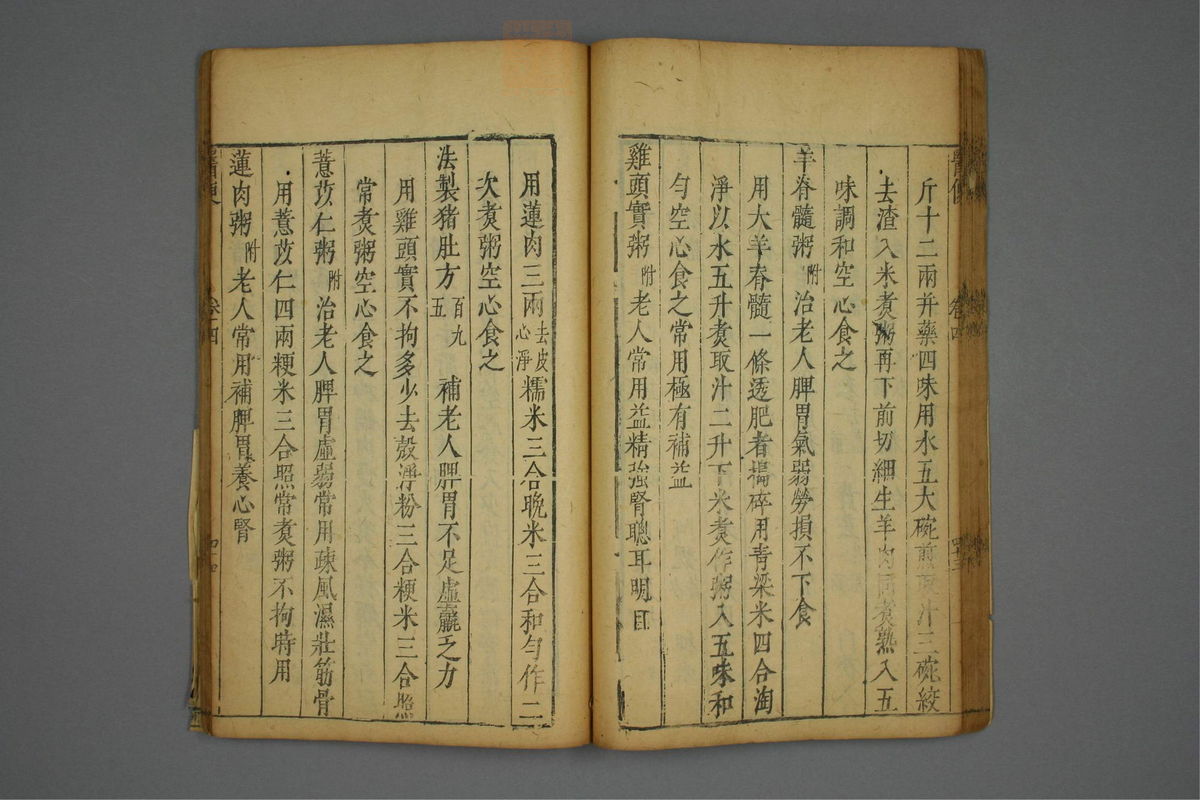 斤十二兩并藥四味用水五大碗煎取汁三碗絞
去渣入米煮粥再下前切細生羊肉同煮熟入五
味調和空心食之
羊脊髓粥附治老人脾胃氣弱勞損不下食
用大羊脊髓一條透肥者搗碎用青粱米四合淘
淨以水五升煮取汁二升下米煮作粥入五味和
勻空心食之常用極有補益
雞頭實粥附老人常用益精強腎聰耳明目
用雞頭實不拘多少去殼淨粉三合粳米三合照
常煮粥空心食之
薏苡仁粥附治老人脾胃虛弱常用疎風濕壯筋骨
用薏苡仁四兩粳米三合照常煮粥不拘時用
蓮肉粥附老人常用補脾胃養心腎
用蓮肉三兩去皮心淨糯米三合晚米三合和勻作二
次煮粥空心食之
法製猪肚方百九五補老人脾胃不足虛羸乏力
醫便
卷十四